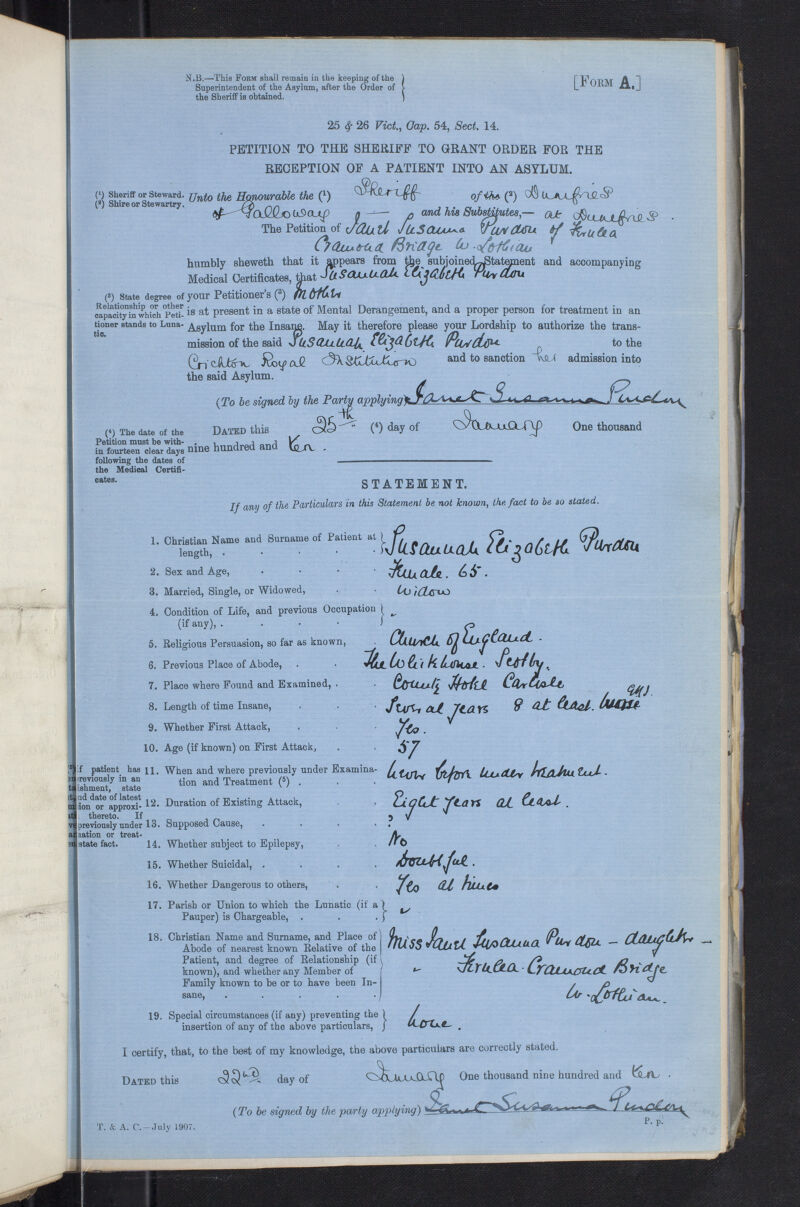 N.B.—This Form shall remain in the keeping of the
Superintendent of the Asylum, after the Order of
the Sheriff is obtained.
[Form A.]
25 & 26 Vict., Cap. 54, Sect. 14.
PETITION TO THE SHERIFF TO GRANT ORDER FOR THE
RECEPTION OF A PATIENT INTO AN ASYLUM.
(1) Sheriff or Steward.
(2) Shire or Stewartry.
Unto the Honourable the (1) Sheriff of the (2) Dumfries
& Galloway — and his Substitutes,— at Dumfries.
The Petition of Janet Susanna Purdon of Ferulea
Cramond Bridge W. Lothian
humbly sheweth that it appears from the subjoined Statement and accompanying
Medical Certificates, that Susannah Elizabeth Purdon
(3) State degree of
Relationship or other
capacity in which Peti-
tioner stands to Luna-
tic.
your Petitioner's (3) Mother
is at present in a state of Mental Derangement, and a proper person for treatment in an
Asylum for the Insane. May it therefore please your Lordship to authorize the trans-
mission of the said Susannah Elizabeth Purdon to the
Crichton Royal Institution and to sanction her admission into
the said Asylum.
(To be signed by the Party applying) Janet Susanna Purdon
(4) The date of the
Petition must be with-
in fourteen clear days
following the dates of
the Medical Certifi-
cates.
Dated this 25th (4) day of January One thousand
nine hundred and ten.
STATEMENT.
If any of the Particulars in this Statement be not known, the fact to be so stated.
1. Christian Name and Surname of Patient at
length, . . . . . Susannah Elizabeth Purdon
2. Sex and Age, . . . . Female. 65.
3. Married, Single, or Widowed, . . Widow
4. Condition of Life, and previous Occupation
(if any), . . . . "
5. Religious Persuasion, so far as known, . Church of England.
6. Previous Place of Abode, . . The Whitehouse. Scotby.
7. Place where Found and Examined, . . County Hotel Carlisle
8. Length of time Insane, . . . Several years 8 at least.
9. Whether First Attack, . . . Yes.
10. Age (if known) on First Attack, . . 57
(5) If patient has
previously in an
state
and date of latest
or approxi-
thereto. If
previously under
or treat-
state fact.
11. When and where previously under Examina-
tion and Treatment (5) . . . Never before under treatment.
12. Duration of Existing Attack, . Eight years at least.
13. Supposed Cause, . . . . ?
14. Whether subject to Epilepsy, . . No
15. Whether Suicidal, . . . . Doubtful.
16. Whether Dangerous to others, . . Yes at times
17. Parish or Union to which the Lunatic (if a
Pauper) is Chargeable, . . . "
18. Christian Name and Surname, and Place of
Abode of nearest known Relative of the
Patient, and degree of Relationship (if
known), and whether any Member of
Family known to be or to have been In-
sane, . . . . . .
Miss Janet Susanna Purdon – daughter –
" Ferulea. Cramond Bridge
W. Lothian.
19. Special circumstances (if any) preventing the
insertion of any of the above particulars, None.
I certify, that, to the best of my knowledge, the above particulars are correctly stated.
Dated this 22nd day of January One thousand nine hundred and ten.
(To be signed by the party applying) Janet Susanna Purdon
T. & A. C.—July 1907.
P. p.